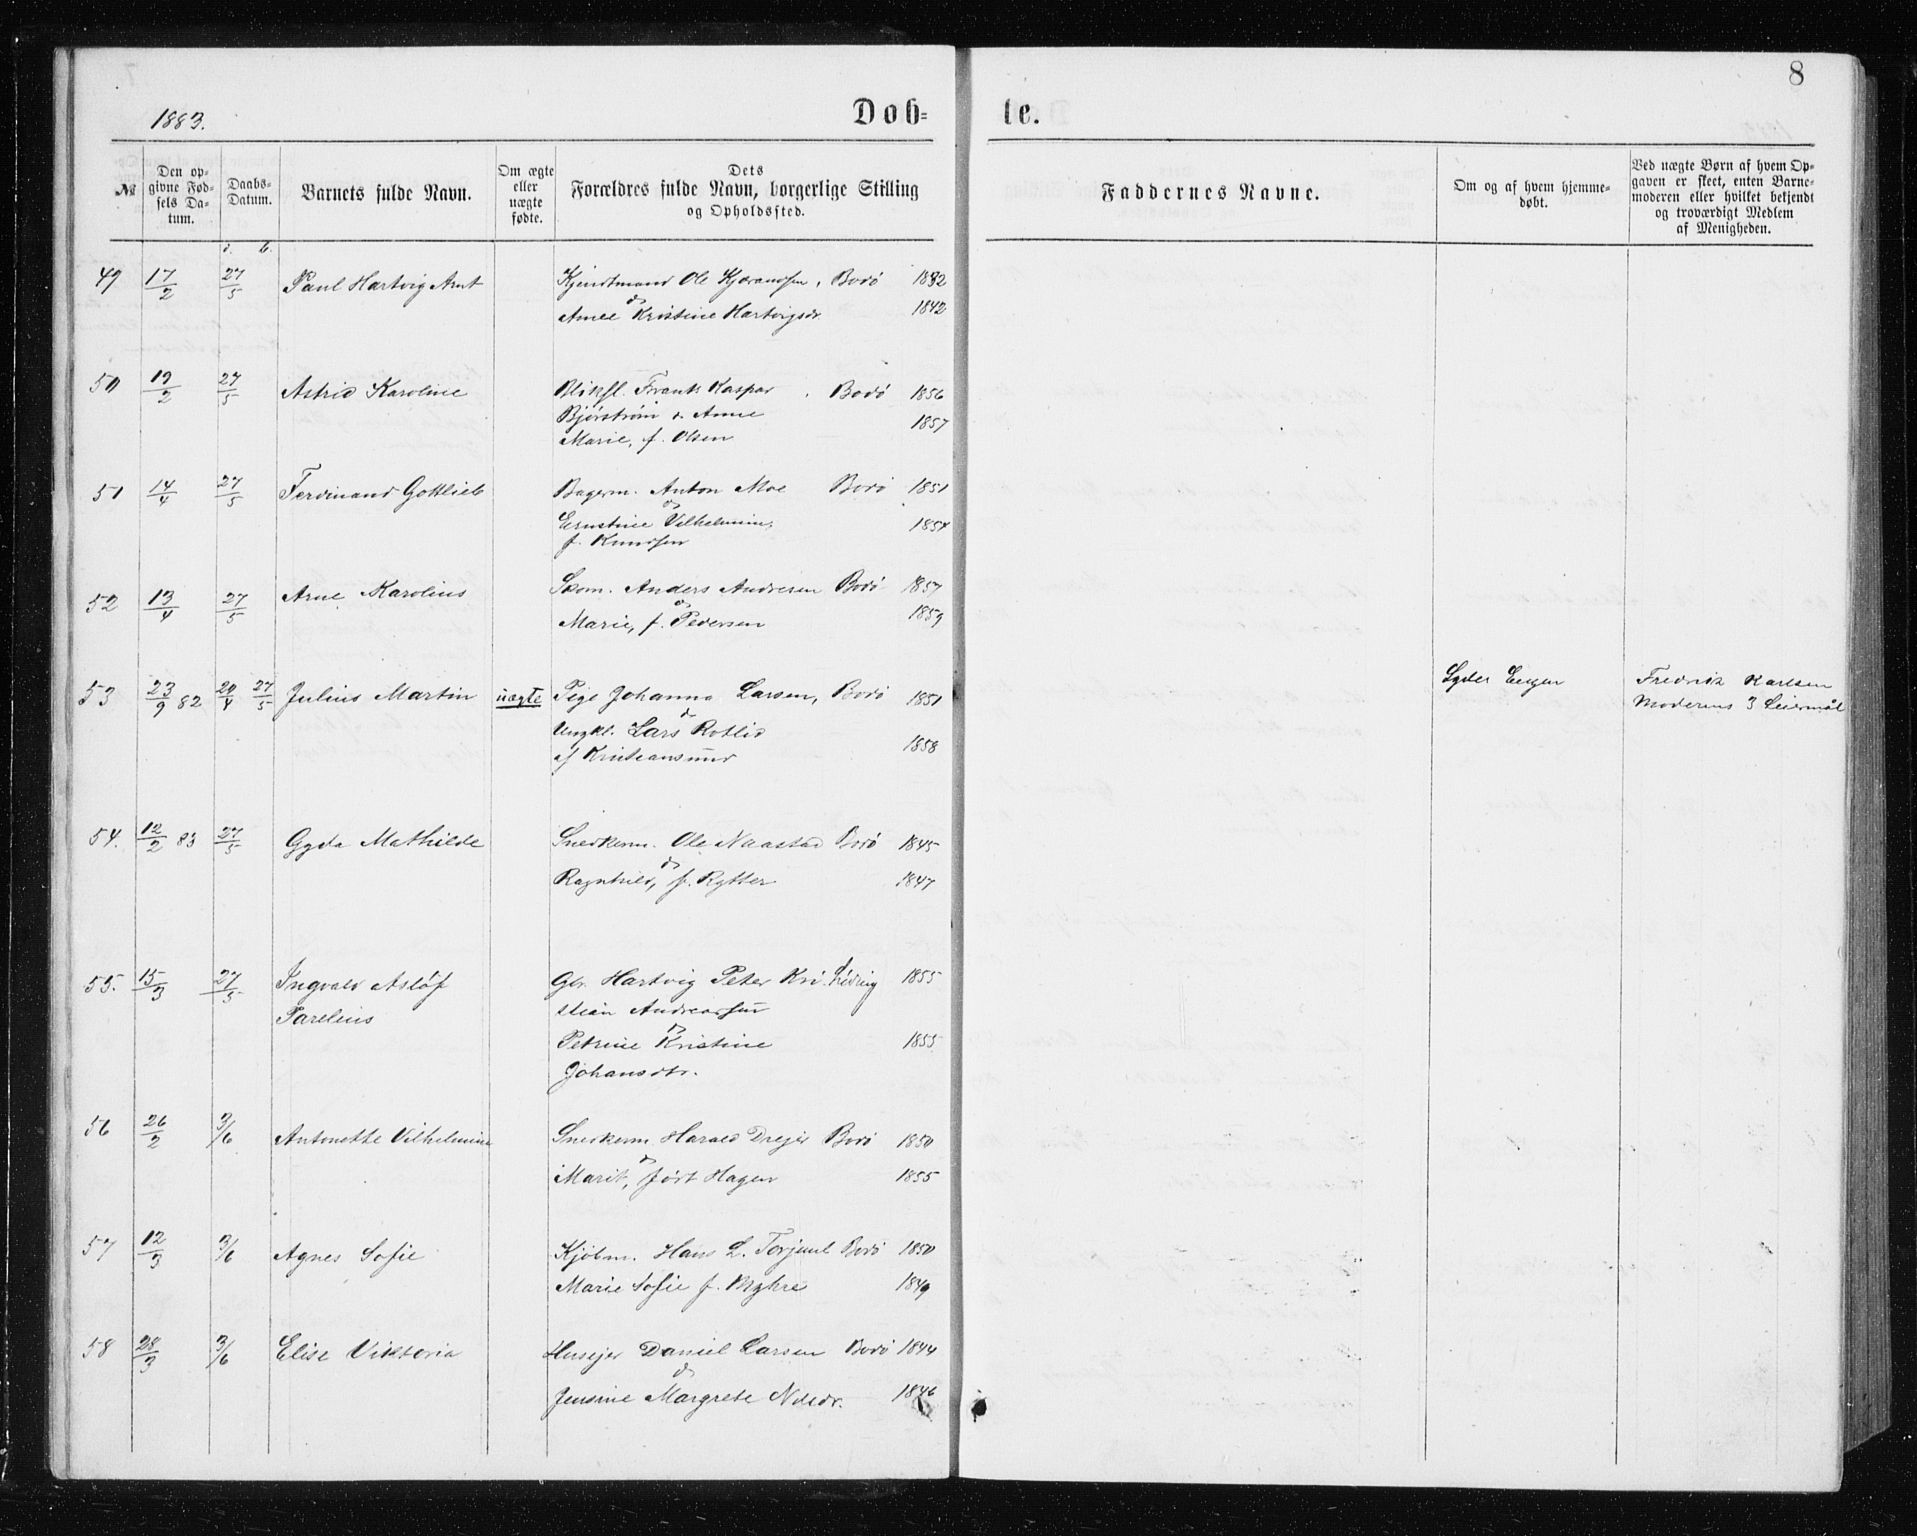 8
1883.
Døb=
te.
№
Den op-
givne Fød-
sels Da-
tum.
Daabs-
Datum.
Barnets fulde Navn.
Om ægte
eller
uægte
fødte.
Dets
Forældres fulde Navn, borgerlige Stilling
og Opholdssted.
Faddernes Navne.
Om og af hvem hjemme-
døbt.
Ved uægte Børn af hvem Op-
gaven er skeet, enten Barne-
moderen eller hvilket bekjendt
og troværdigt Medlem
af Menigheden.
49 17/2 27/5 Paul Hartvig Arnt Ole Bodø
Kristine Hartvigsdr. 1842
50 19/2 27/5 Astrid Karoline Frants Kaspar Bodø 1856
Bjørstrøm & Anne 1857
Marie, f. Olsen
51 14/4 27/5 Ferdinand Gottlieb Bagerm. Anton Moe Bodø 1851
Ernstine Vilhelmine, 1854
f. Knudsen
52 13/4 27/5 Arne Karolius Skom. Anders Andresen Bodø 1857
Marie, f. Pedersen 1859
53 23/9 82 20/4 27/5 Julius Martin uægte Pige Johanna Larsen, Bodø 1851 Fredrik Karlsen
Ungkl. Lars Rotlid Moderens 3 Leiermål
af Kristiansund 1858
54. 12/2 83 27/5 Gyda Mathilde Snedkerm. Ole Naastad Bodø 1845
Ragnhild, f. Rytter 1847
55. 15/3 27/5 Ingvald Asløf Hartvig Peter Kri- 1855
Parelius stian Andreassen
Petrine Kristine 1855
Johansdtr.
56 26/2 3/6 Antonette Vilhelmine Snedkerm. Harald Drejer Bodø 1850
Marit, født Hagen 1855
57 12/3 3/6 Agnes Sofie Kjøbm. Hans L. Bodø 1850
Marie Sofie f. Myhre 1849
58 28/3 3/6 Elise Viktoria Husejer Daniel Larsen Bodø 1844
Jensine Margrete Nilsdr. 1846